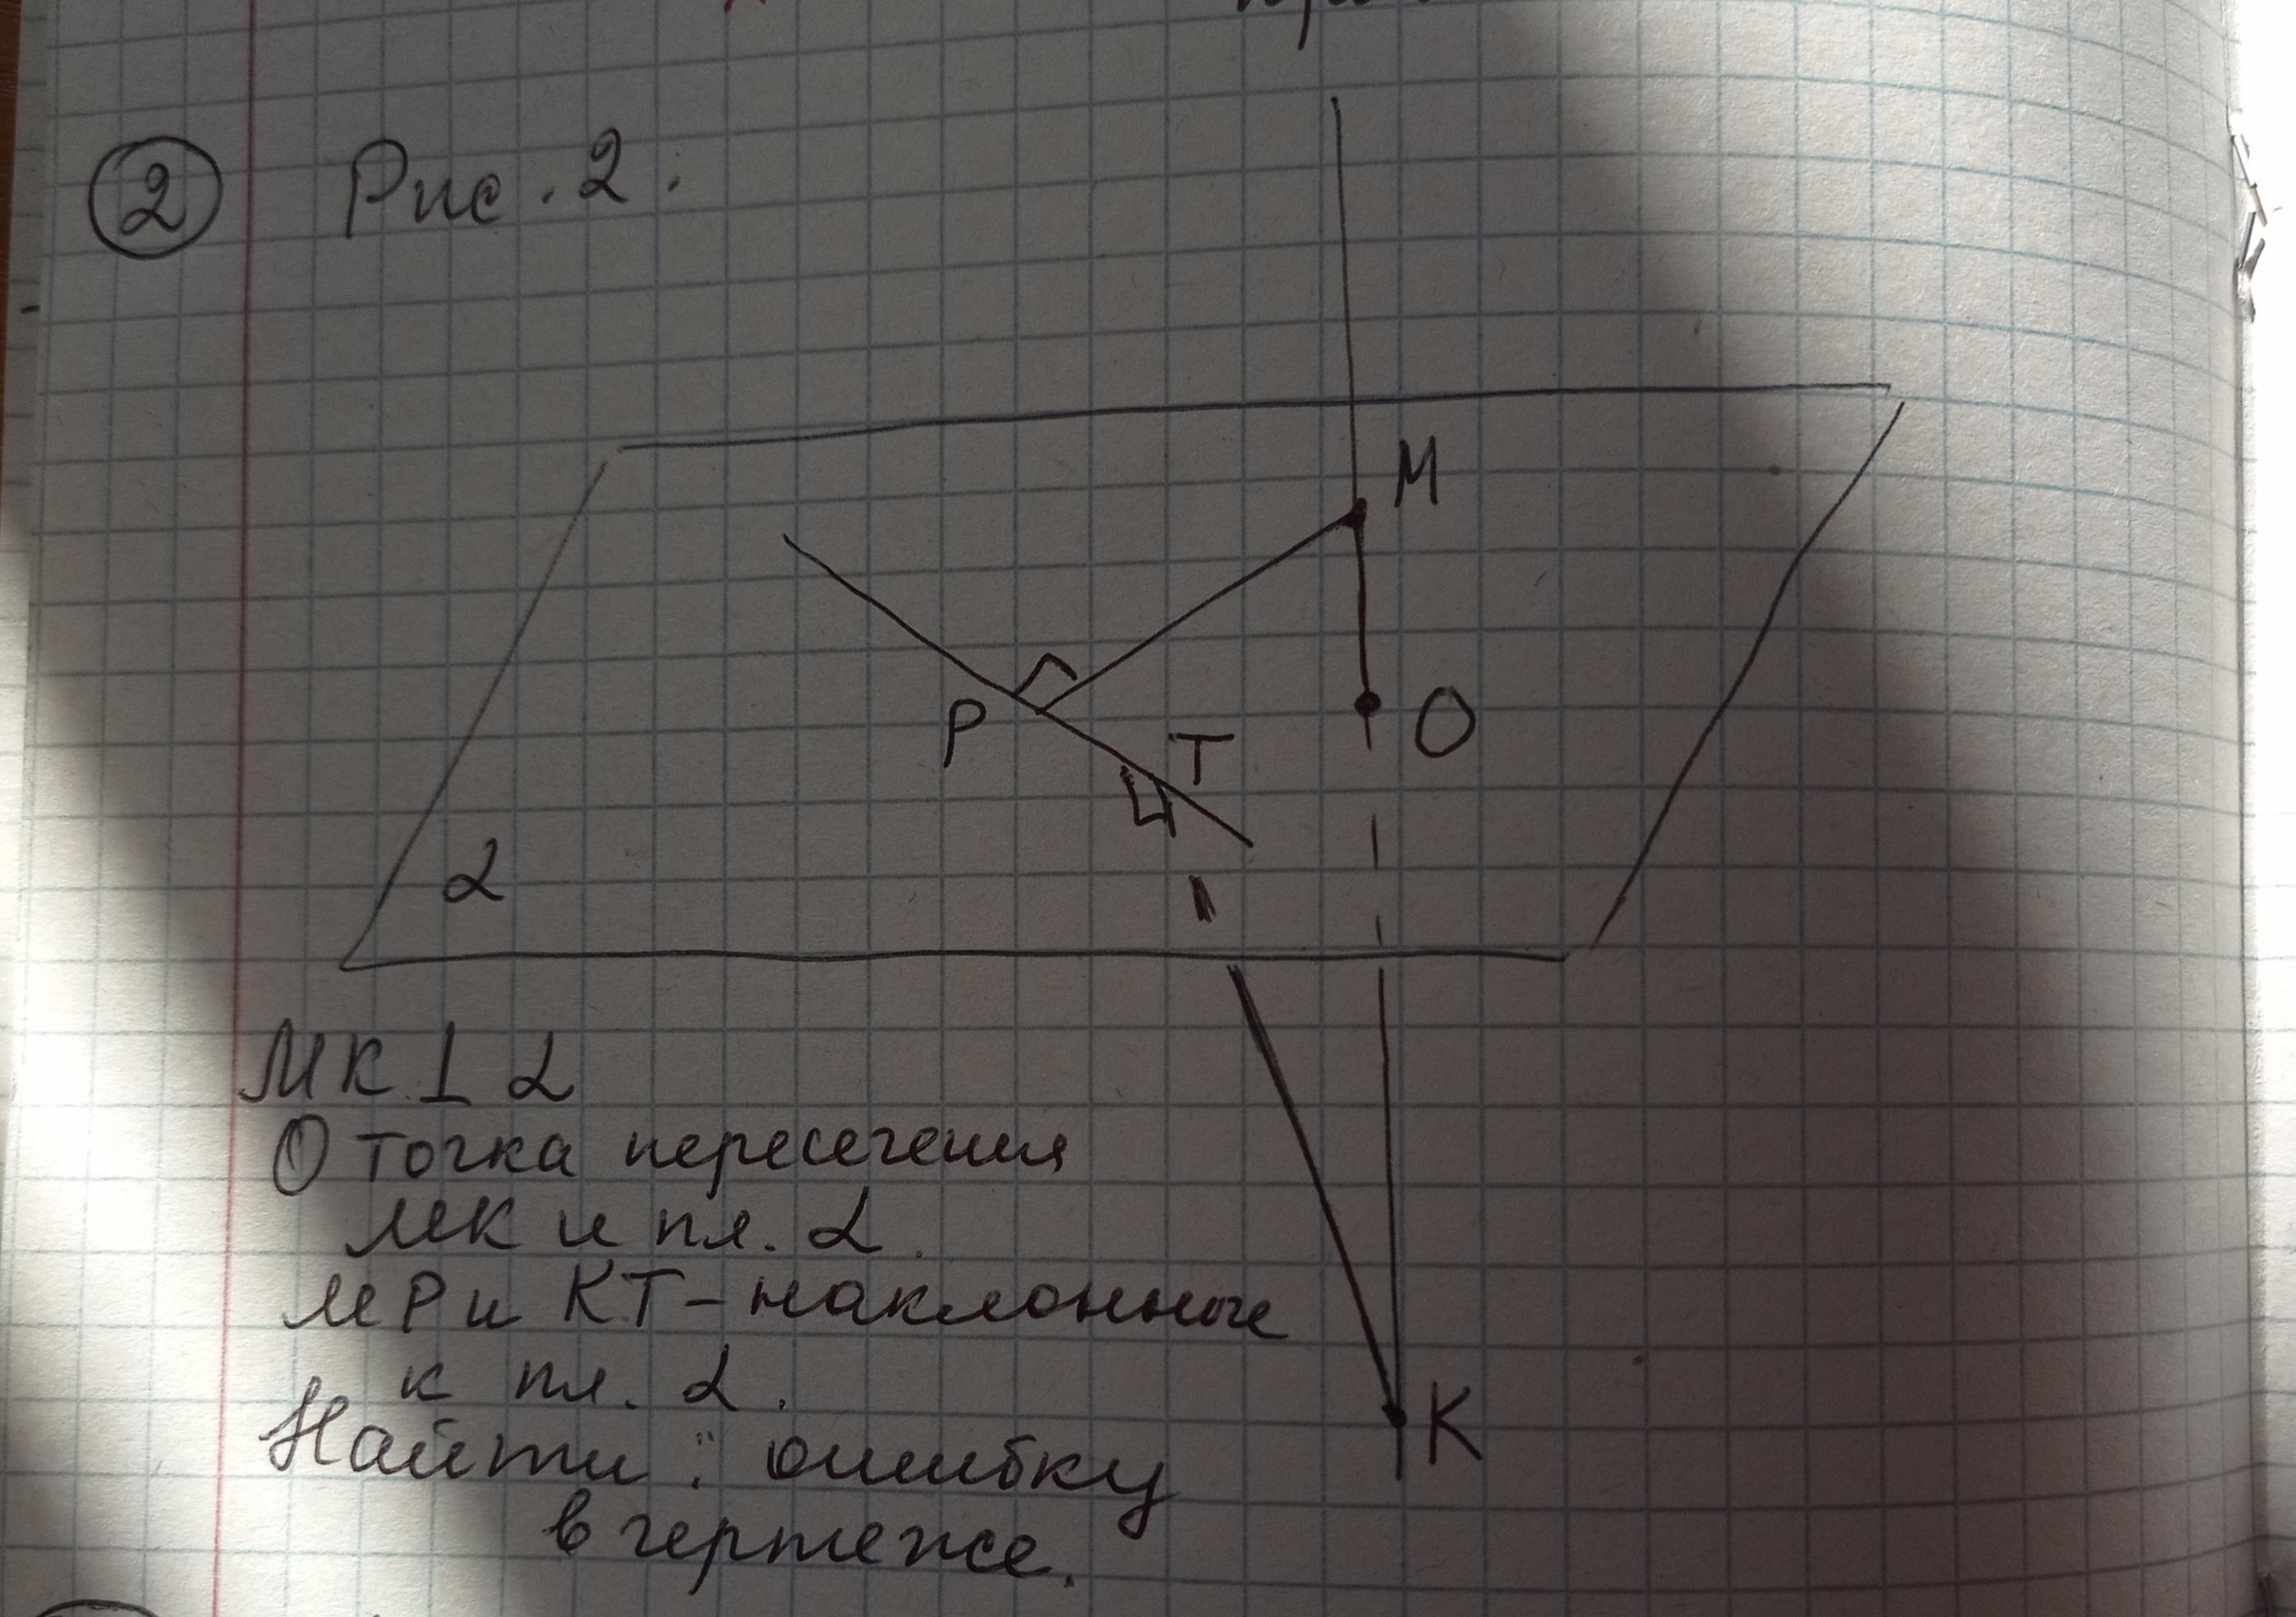 2 Рис. 2.
М
Р
Т
О
α
К
МК ⊥ α
О точка пересечения
МК и пл. α.
МР и КТ – наклонные
к пл. α.
Найти: ошибку
в чертеже.